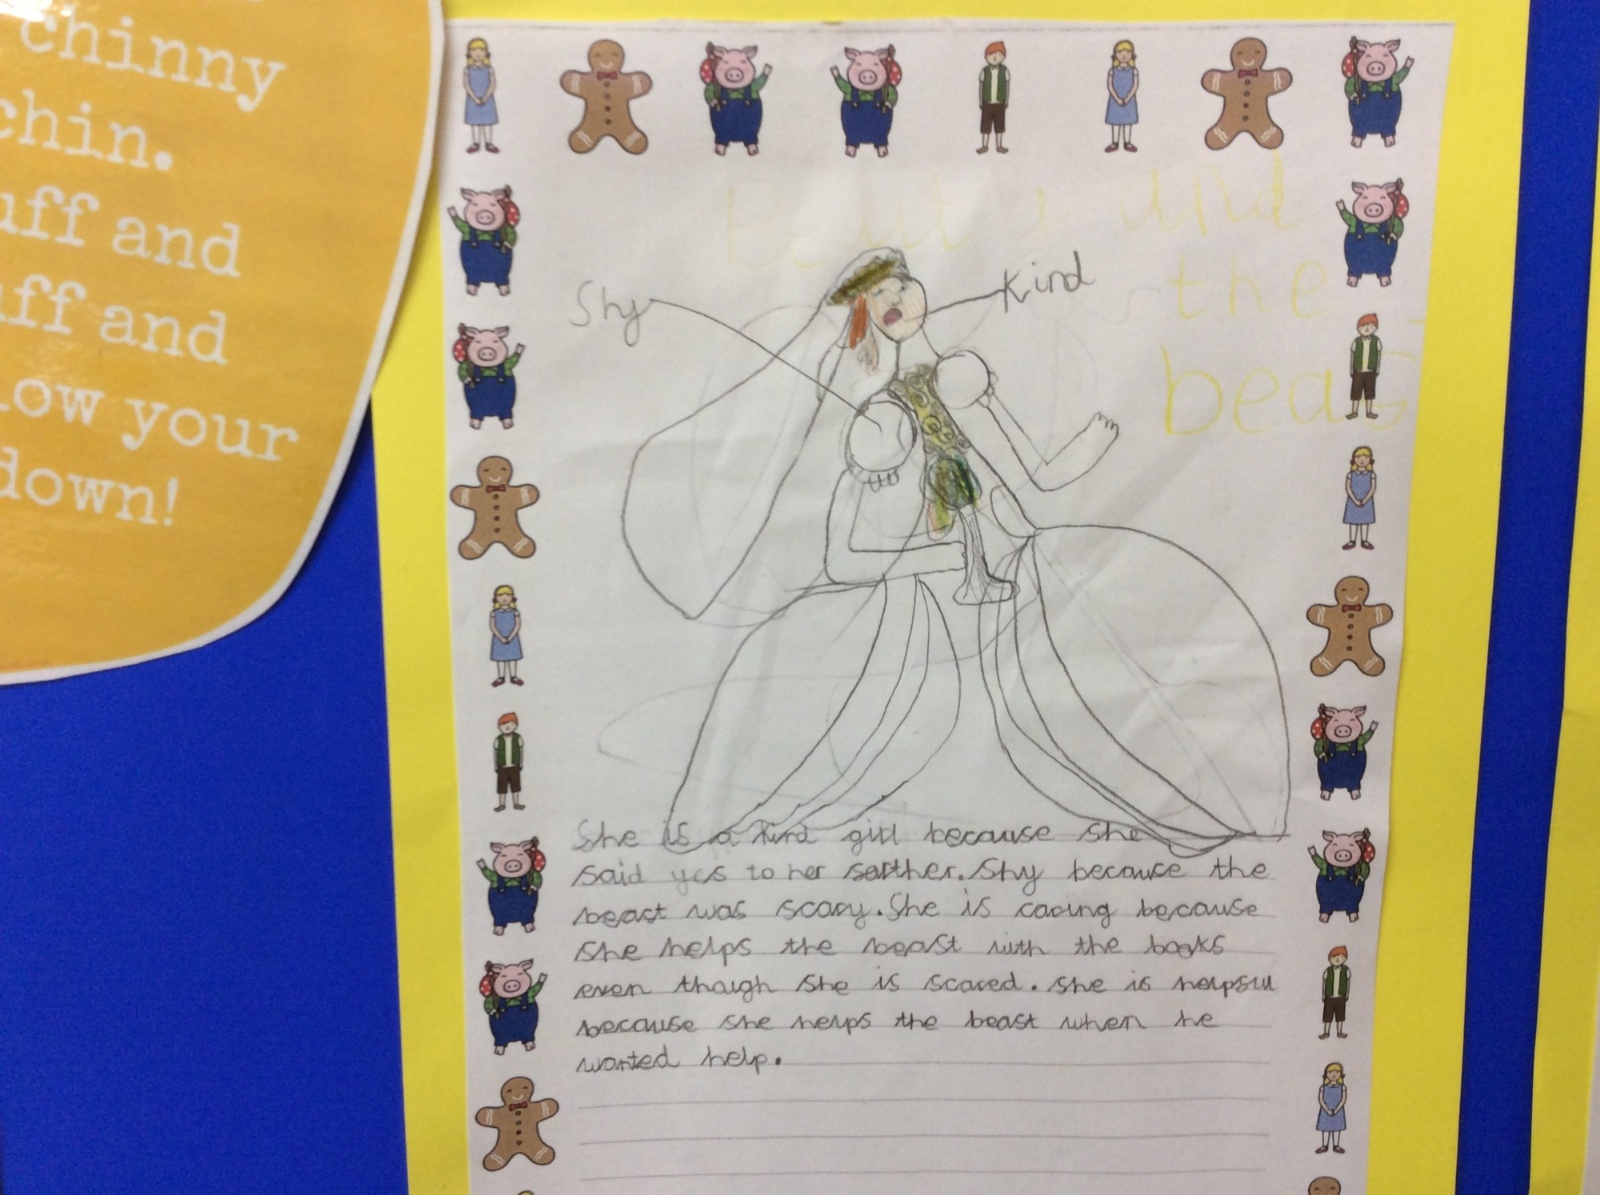 chinny
chin.
uff and
uff and
low your
down!
and
the
beas
Shy
Kind
She is a kind girl because she
said yes to her sarther. Shy because the
beast was scary. She is caring because
she helps the beast with the books
even though she is scared. she is helpsul
because she helps the beast when he
wanted help.